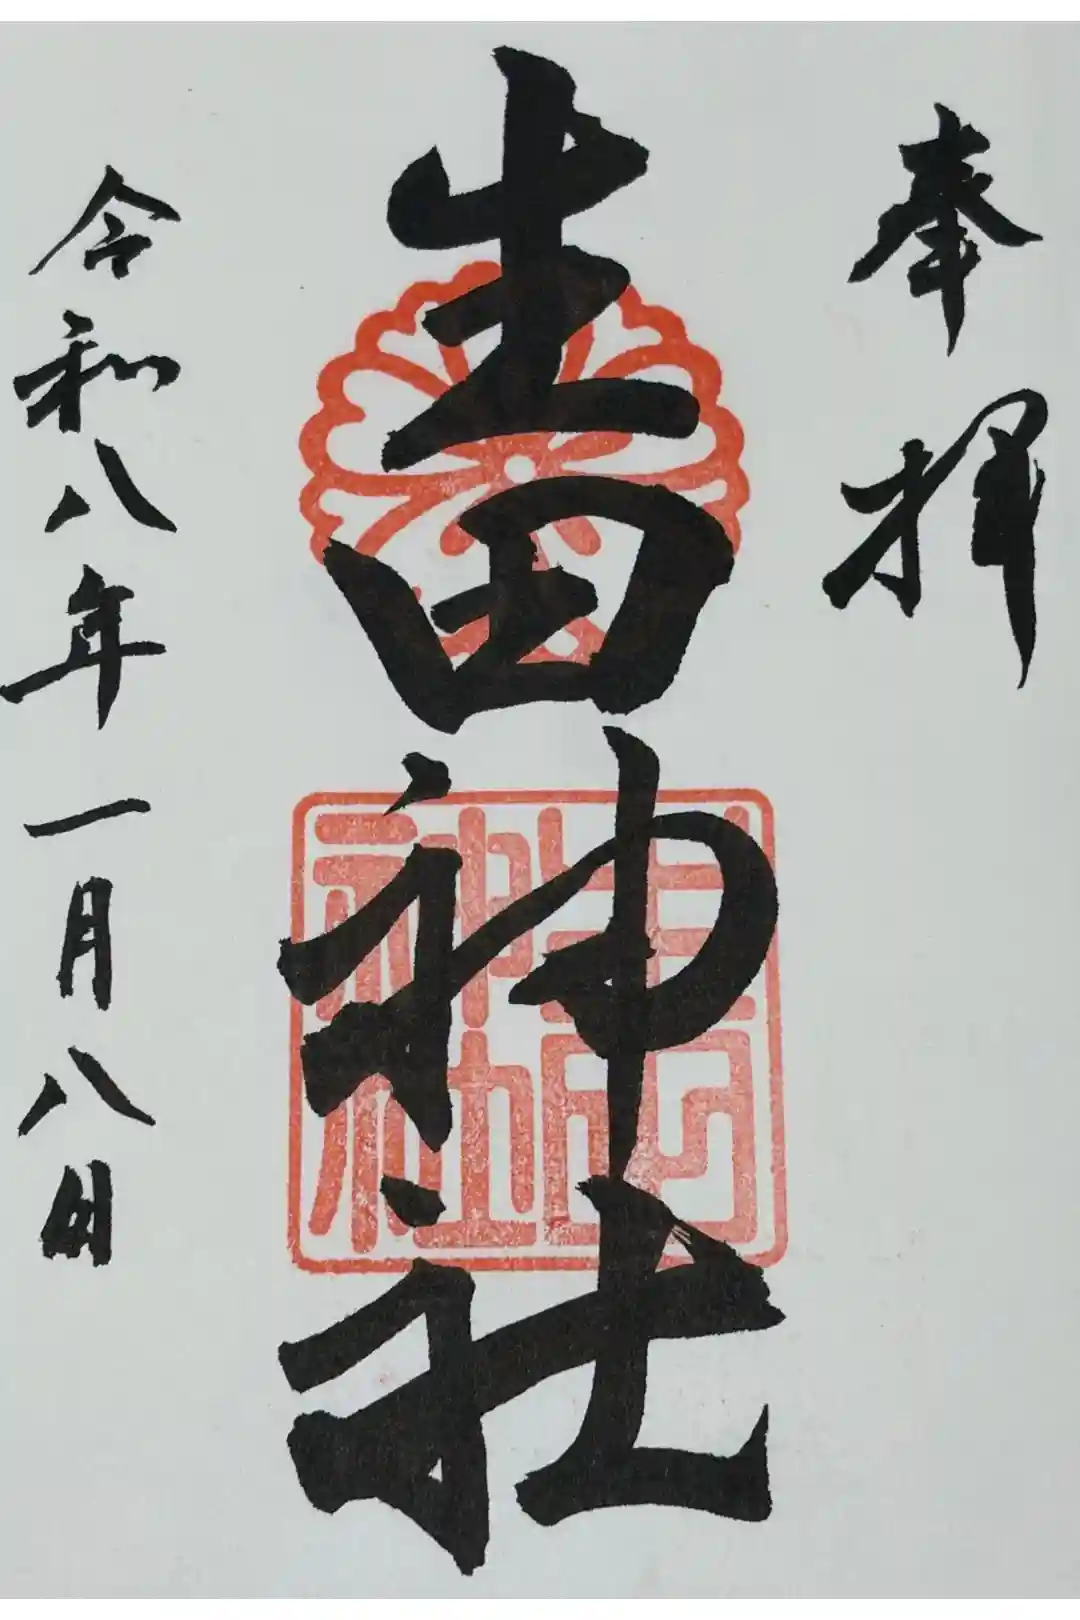 奉拝
生田神社
生田神社
令和八年一月八日